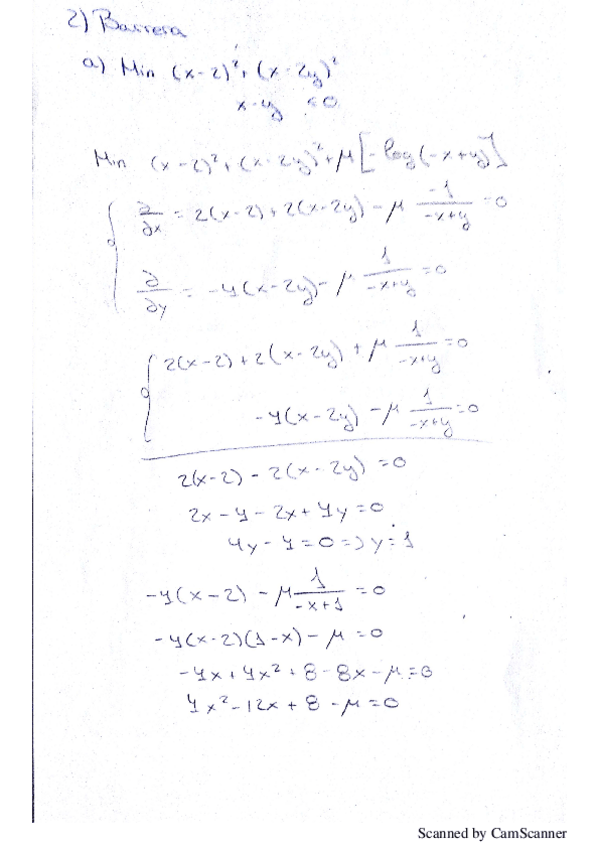 2) Barrera
a) Min (x-2)² + (x-2y)²
x-y ≤0
Min (x-2)² + (x-2y)² + μ[-log(-x+y)]
∂/∂x = 2(x-2) + 2(x-2y) - μ -1/(-x+y) = 0
∂/∂y = -4(x-2y) - μ 1/(-x+y) = 0
2(x-2) + 2(x-2y) + μ 1/(-x+y) = 0
-4(x-2y) - μ 1/(-x+y) = 0
2(x-2) - 2(x-2y) = 0
2x - 4 - 2x + 4y = 0
4y - 4 = 0 => y = 1
-4(x-2) - μ 1/(-x+1) = 0
-4(x-2)(1-x) - μ = 0
-4x + 4x² + 8 - 8x - μ = 0
4x² - 12x + 8 - μ = 0
Scanned by CamScanner